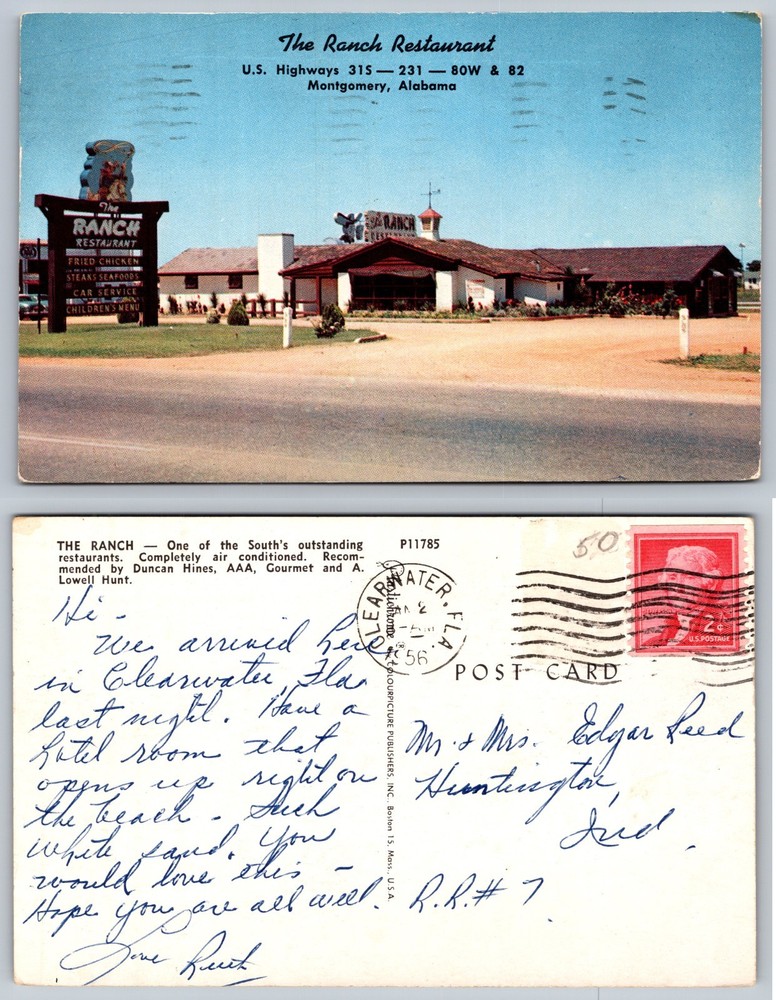 The Ranch Restaurant
U.S. Highways 31S — 231 — 80W & 82
Montgomery, Alabama
The
RANCH
RESTAURANT
FRIED CHICKEN
STEAKS SEAFOODS
CAR SERVICE
CHILDREN'S MENU
The RANCH
RESTAURANT
THE RANCH — One of the South's outstanding
restaurants. Completely air conditioned. Recom-
mended by Duncan Hines, AAA, Gourmet and A.
Lowell Hunt.
P11785
50
CLEARWATER, FLA
2
1956
2¢
U.S. POSTAGE
POST CARD
COLOURPICTURE PUBLISHERS, INC., Boston 15, Mass., U.S.A.
Hi -
We arrived here
in Clearwater, Fla
last night. Have a
hotel room that
opens up right on
the beach - Such
white sand. You
would love this -
Hope you are all well.
Love Ruth
Mr. & Mrs. Edgar Reed
Huntington,
Ind.
R.R.# 7